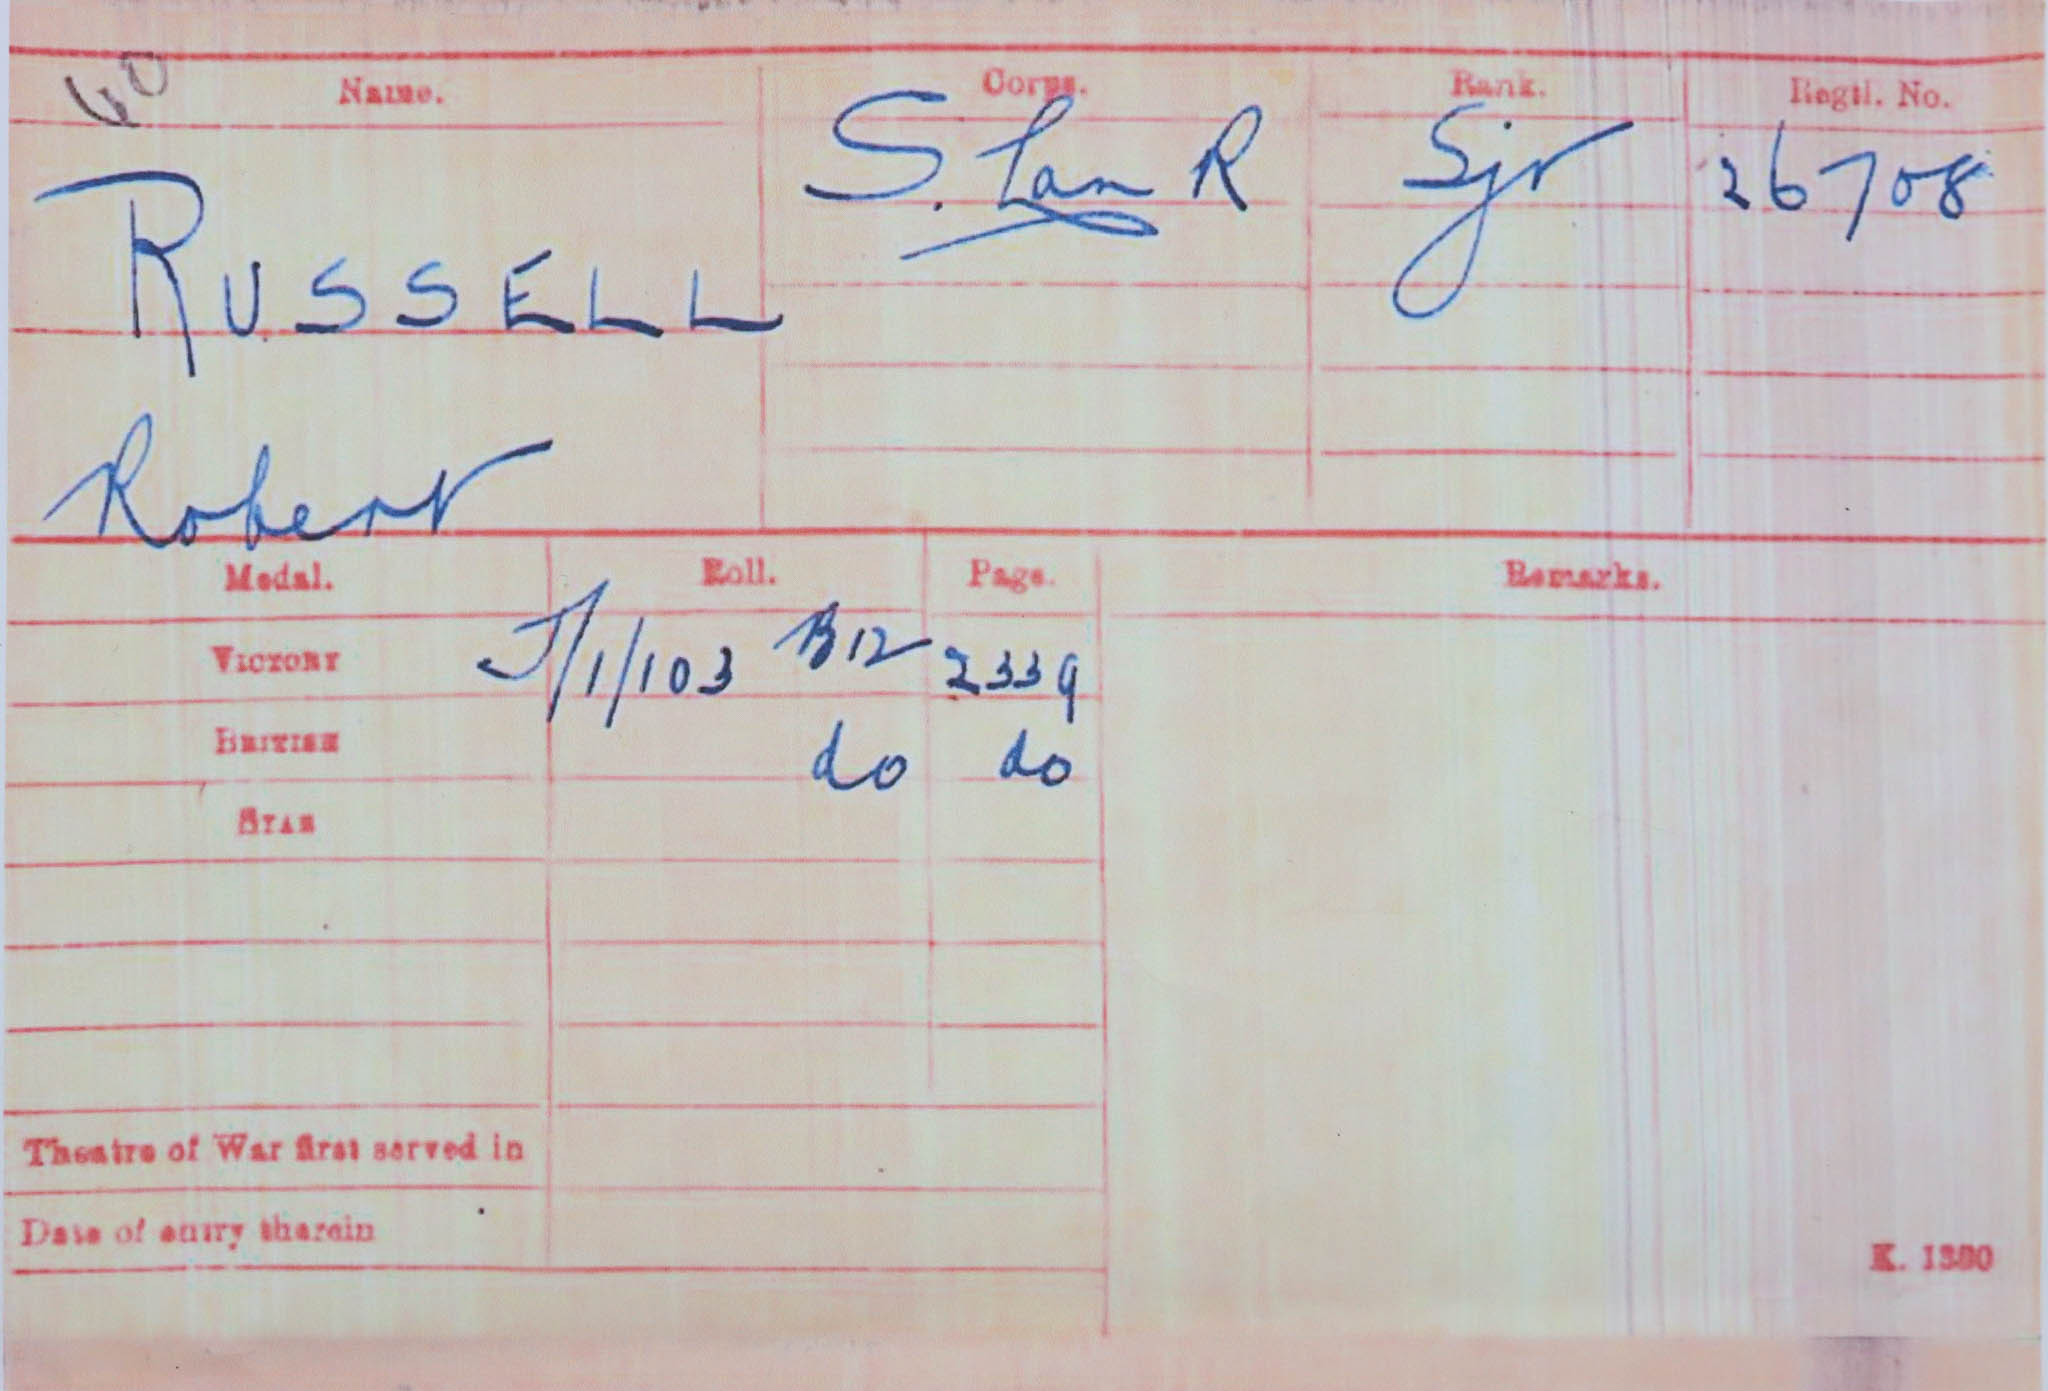 40
Name. Corps. Rank. Regtl. No.
RUSSELL S. Lan R Sjt 26708
Robert
Medal. Roll. Page. Remarks.
VICTORY J/1/103 B12 2339
BRITISH do do
STAR
Theatre of War first served in
Date of entry therein
K. 1380